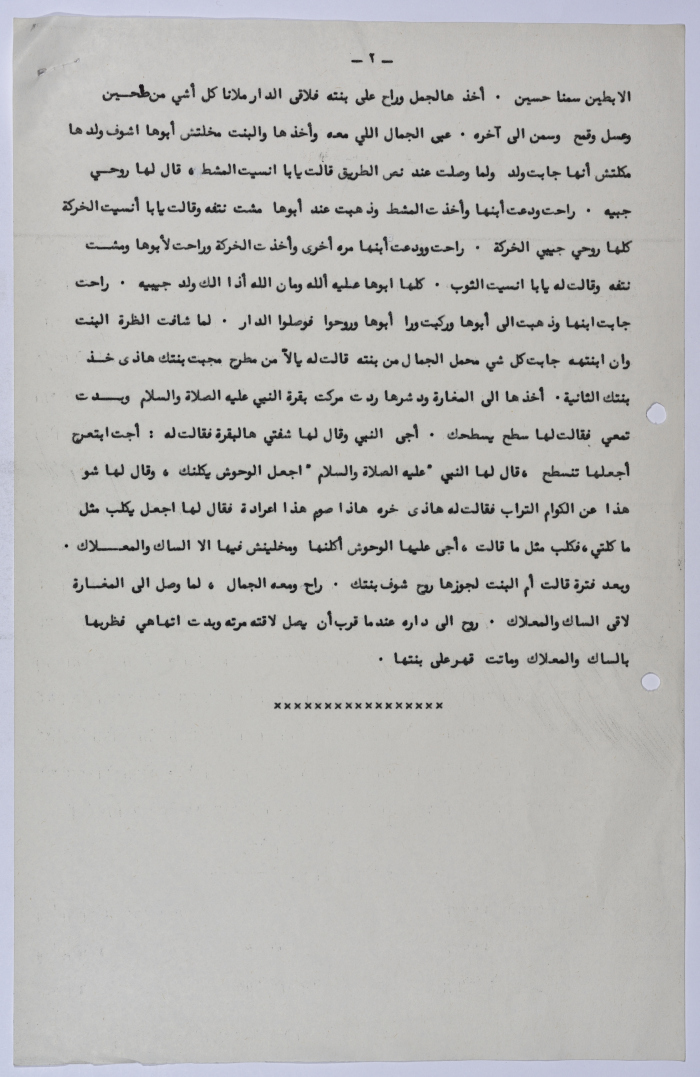 — ٢ —
الابطين سمنا حسين ٠ أخذ هالجمل وراح على بنته فلاقى الدار ملانا كل أشي من طحين
وعسل وقمح وسمن الى آخره ٠ عبى الجمال اللي معه وأخذها والبنت مخلتش أبوها اشوف ولدها
مكلتش أنها جابت ولد ولما وصلت عند نص الطريق قالت يابا انسيت المشط ، قال لها روحي
جيبيه ٠ راحت ودعت أبنها وأخذت المشط وذهبت عند أبوها مشت نتفه وقالت يابا أنسيت الخركة
كلها روحي جيبي الخركة ٠ راحت وودعت أبنها مره أخرى وأخذت الخركة وراحت لأبوها ومشت
نتفه وقالت له يابا انسيت الثوب ٠ كلها ابوها عليه ألله ومان الله أذا الك ولد جيبيه ٠ راحت
جابت ابنها وذهبت الى أبوها وركبت ورا أبوها وروحوا فوصلوا الدار ٠ لما شافت الظرة البنت
وان ابنتهه جابت كل شي محمل الجمال من بنته قالت له يالآ من مطرح مجبت بنتك هاذى خذ
بنتك الثانية ٠ أخذها الى المغارة ودشرها ردت مركت بقرة النبي عليه الصلاة والسلام وبدت
تمعي فقالت لها سطح يسطحك ٠ أجى النبي وقال لها شفتي هالبقرة فقالت له : أجت ابتعرج
أجعلها تنسطح ، قال لها النبي "عليه الصلاة والسلام" اجعل الوحوش يكلنك ، وقال لها شو
هذا عن الكوام التراب فقالت له هاذى خره هاذا صوم هذا اعرادة فقال لها اجعل يكلب مثل
ما كلتي ، فكلب مثل ما قالت ، أجى عليها الوحوش أكلنها ومخلينش فيها الا الساك والمعلاك ٠
وبعد فترة قالت أم البنت لجوزها روح شوف بنتك ٠ راح ومعه الجمال ، لما وصل الى المغارة
لاقى الساك والمعلاك ٠ روح الى داره عندما قرب أن يصل لاقته مرته وبدت اتهاهي فظربها
بالساك والمعلاك وماتت قهر على بنتها ٠
×××××××××××××××××